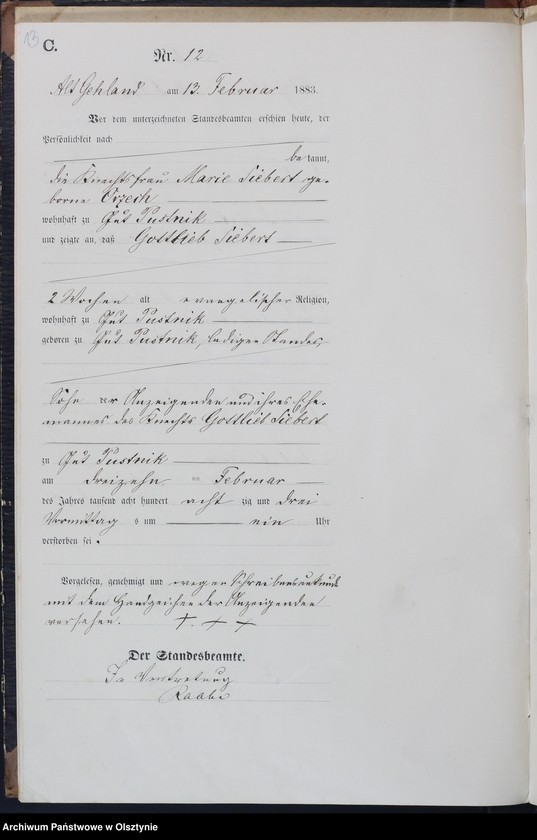 13
C.
Nr. 12
Alt Gehland am 13. Februar 1883.
Vor dem unterzeichneten Standesbeamten erschien heute, der
Persönlichkeit nach
bekannt,
die Knechtsfrau Marie Siebert ge-
borne Orzech
wohnhaft zu Gut Pustnik
und zeigte an, daß Gottlieb Siebert
2 Wochen alt evangelischer Religion,
wohnhaft zu Gut Pustnik
geboren zu Gut Pustnik, ledigen Standes
Sohn der Anzeigenden und ihres Ehe-
mannes des Knechts Gottlieb Siebert
zu Gut Pustnik
am dreizehn ten Februar
des Jahres tausend acht hundert achtzig und drei
Vormittags um ein Uhr
verstorben sei.
Vorgelesen, genehmigt und wegen Schreibensunkunde
mit dem Handzeichen der Anzeigenden
versehen. + + +
Der Standesbeamte.
In Vertretung
Raabe
Archiwum Państwowe w Olsztynie